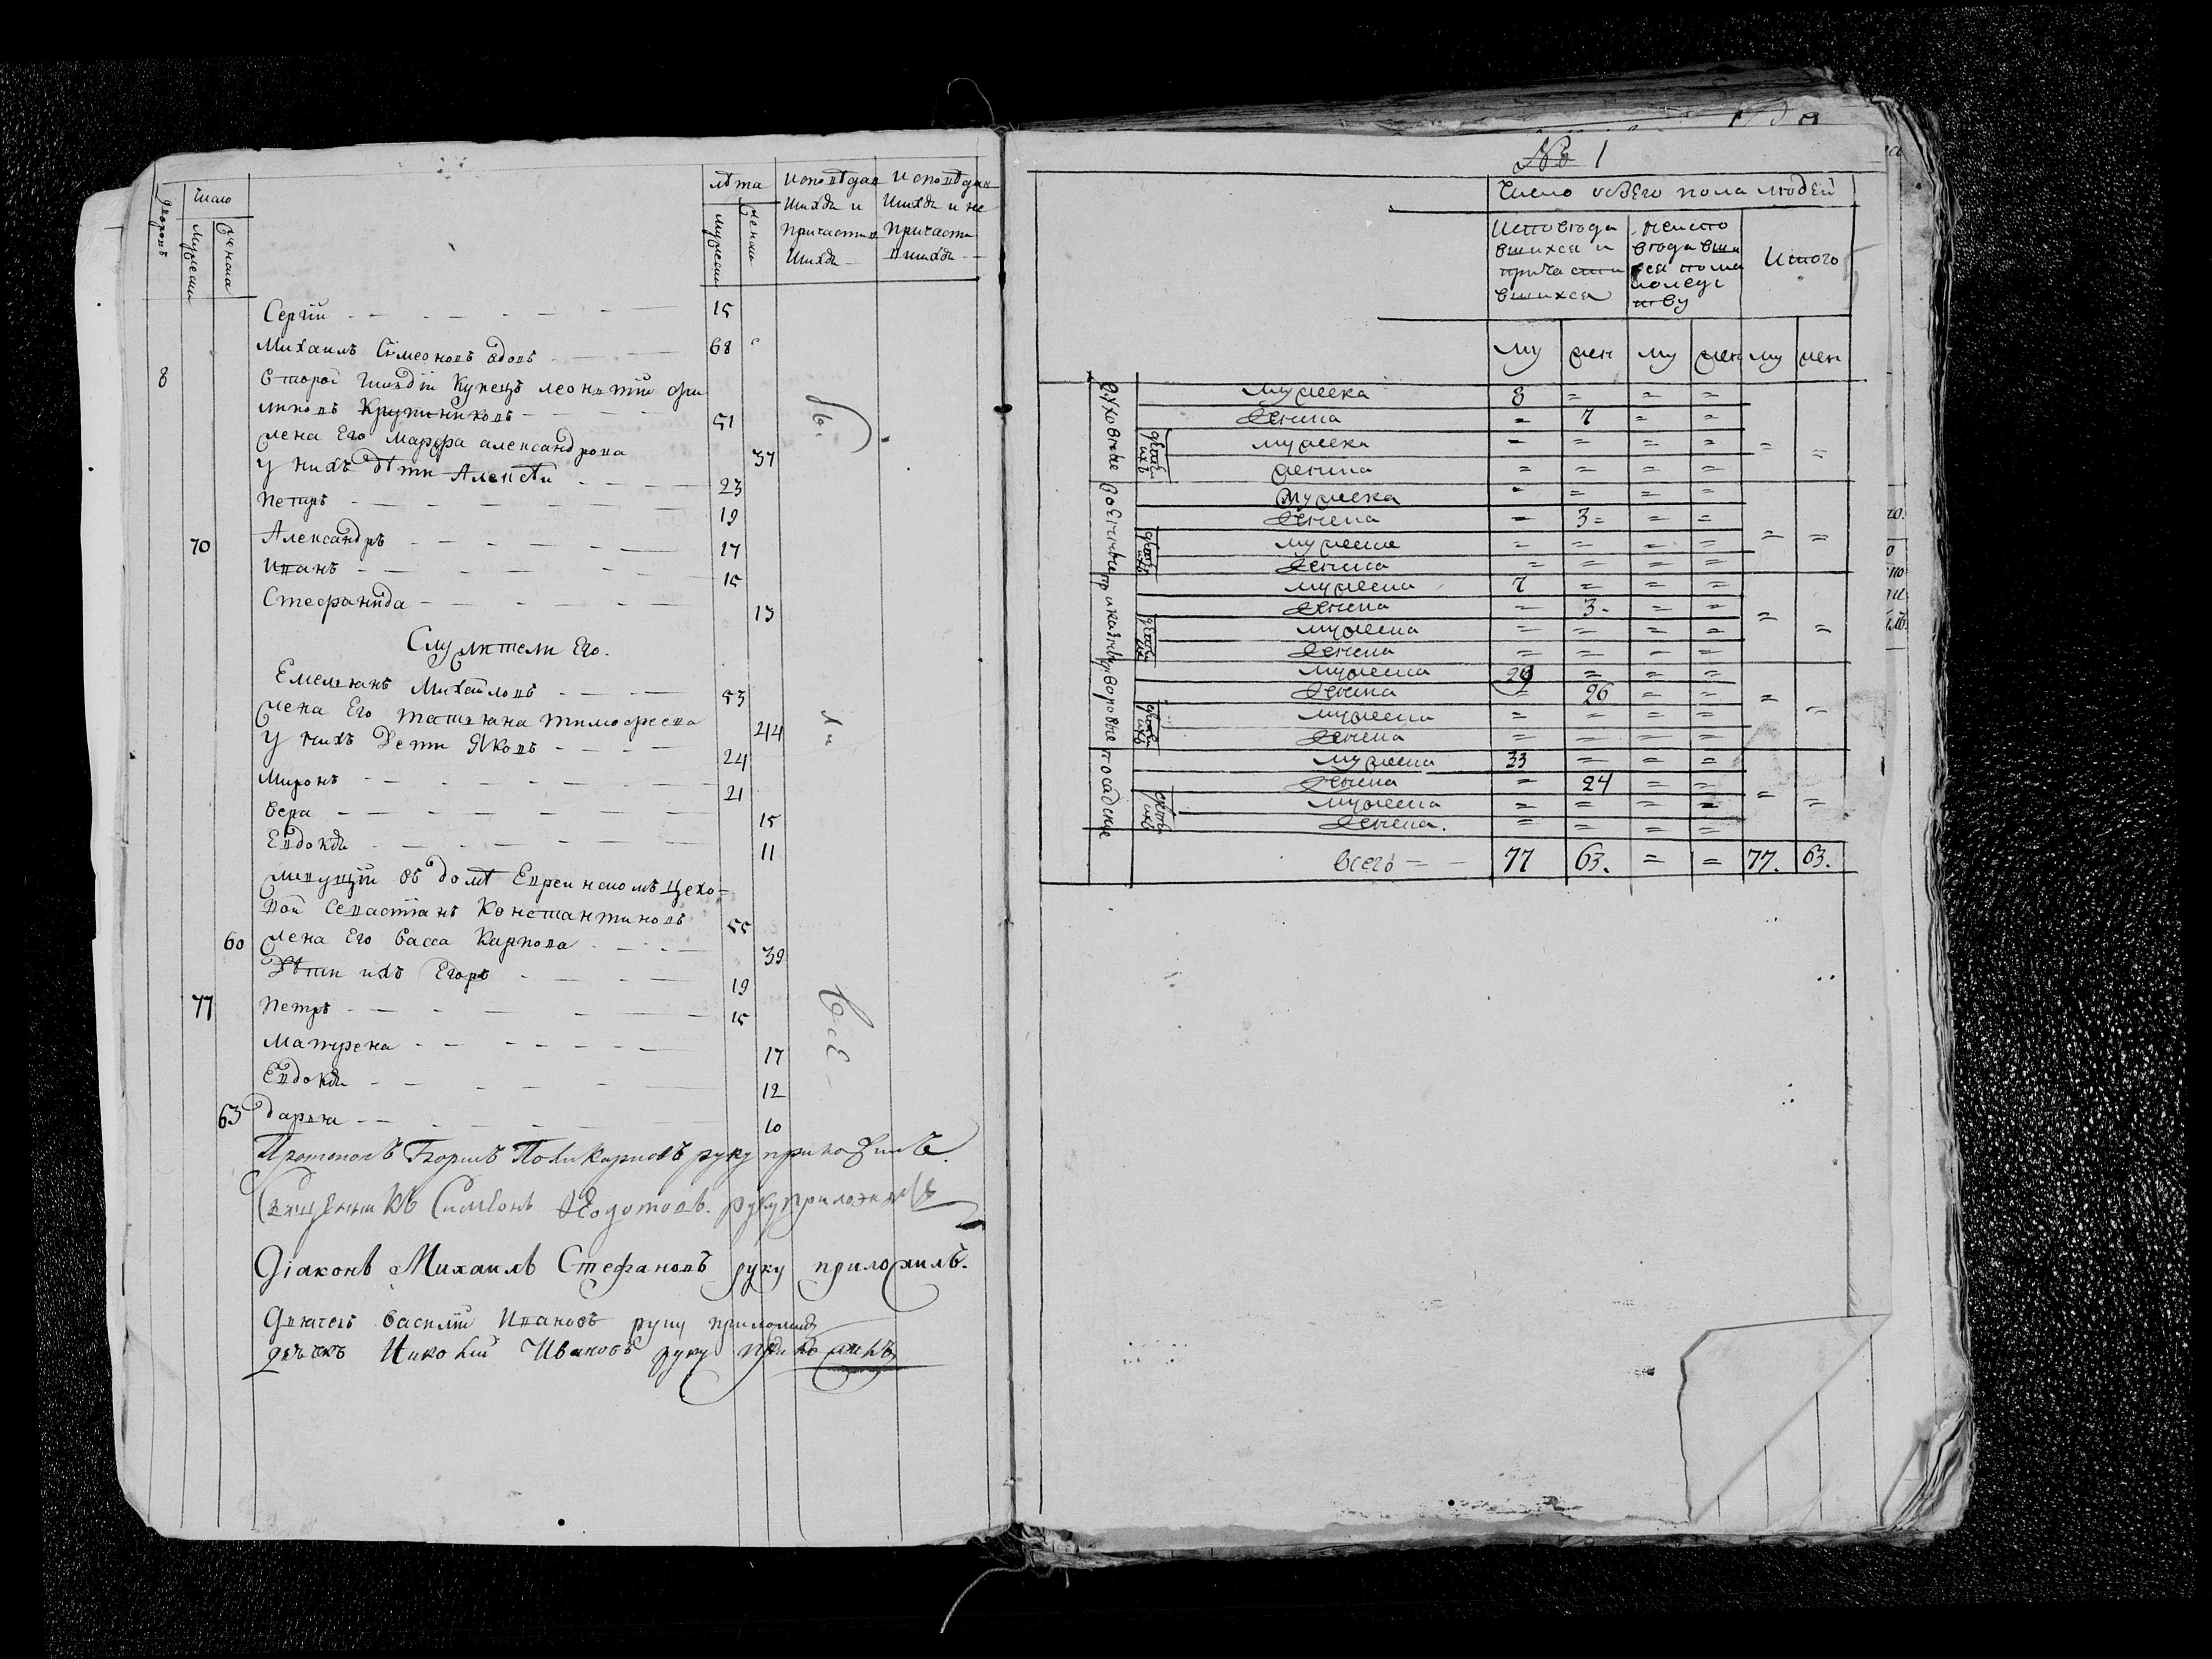 Число
дворовъ
мужеска
женска
лѣта
мужеска
женска
Исповѣдав
шихся и
причастив
шихся
Исповѣдав
шихся и не
причасти
вшихся
Сергій 15
Михаилъ Сѵмеоновъ вдовъ 68
8 Второй гилдіи Купецъ Леонтий Фи
липовъ 51
жена Его Марфа александрова 37
у нихъ дѣти Алексѣй 23
Петръ 19
70 Александръ 17
Иванъ 15
Стефанида 13
Служители Его.
Емельянъ Михайловъ 53
жена Его татьяна тимофеева 44
у нихъ Дети Яковъ 24
Миронъ 21
Вера 15
Евдокія 11
живущій въ домѣ цехо=
вой Севастіанъ Константиновъ 55
60 жена Его Васса Карпова 39
Дѣти ихъ Егоръ 19
77 Петръ 15
Матрена 17
Евдокія 12
63 Дарья 10
Протопопъ Поликарповъ руку приложилъ.
Священникъ Симеонъ Ѳедотовъ. руку приложилъ
Діаконъ Михаилъ Стефановъ руку приложилъ.
Дьячекъ Василій Ивановъ руку приложилъ
Ивановъ руку приложилъ
№ 1
Число обоего пола людей
Исповѣда
вшихся и
причасти
вшихся
неиспо
вѣдавши
ся
Итого
му жен му жен му жен
Духовные
мужеска 8 = = =
женска = 7 = =
детей ихъ
мужеска = = = =
женска = = = =
Военные
мужеска = = = =
женска = 3 = =
детей ихъ
мужеска = = = =
женска = = = =
Приказные
мужеска 7 = = =
женска = 3 = =
детей ихъ
мужеска = = = =
женска = = = =
Дворовые
мужеска 29 = = =
женска = 26 = =
детей ихъ
мужеска = = = =
женска = = = =
Посадские
мужеска 33 = = =
женска = 24 = =
детей ихъ
мужеска = = = =
женска. = = = =
Всего 77 63. = = 77. 63.